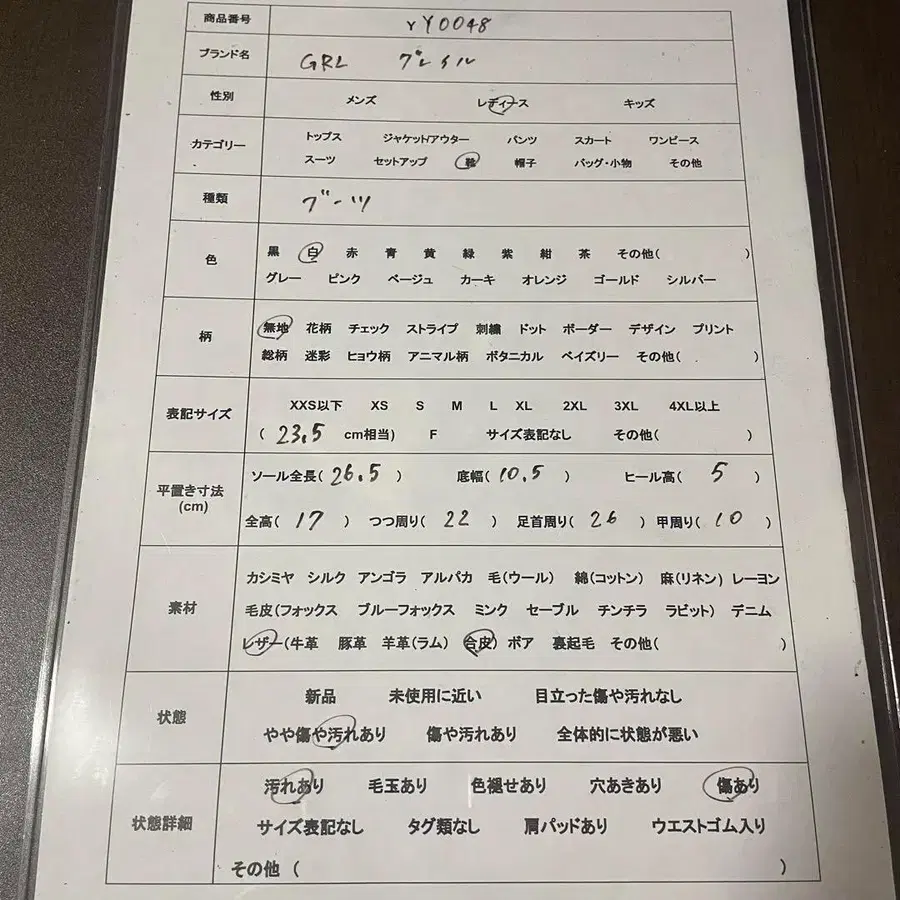 商品番号 rY0048
ブランド名 GRL グレイル
性別 メンズ レディース キッズ
カテゴリー トップス ジャケット/アウター パンツ スカート ワンピース
スーツ セットアップ 靴 帽子 バッグ・小物 その他
種類 ブーツ
色 黒 白 赤 青 黄 緑 紫 紺 茶 その他( )
グレー ピンク ベージュ カーキ オレンジ ゴールド シルバー
柄 無地 花柄 チェック ストライプ 刺繍 ドット ボーダー デザイン プリント
総柄 迷彩 ヒョウ柄 アニマル柄 ボタニカル ペイズリー その他( )
表記サイズ XXS以下 XS S M L XL 2XL 3XL 4XL以上
( 23.5 cm相当) F サイズ表記なし その他( )
平置き寸法 (cm) ソール全長( 26.5 ) 底幅( 10.5 ) ヒール高( 5 )
全高( 17 ) つつ周り( 22 ) 足首周り( 26 ) 甲周り( 10 )
素材 カシミヤ シルク アンゴラ アルパカ 毛(ウール) 綿(コットン) 麻(リネン) レーヨン
毛皮(フォックス ブルーフォックス ミンク セーブル チンチラ ラビット) デニム
レザー(牛革 豚革 羊革(ラム) 合皮) ボア 裏起毛 その他( )
状態 新品 未使用に近い 目立った傷や汚れなし
やや傷や汚れあり 傷や汚れあり 全体的に状態が悪い
状態詳細 汚れあり 毛玉あり 色褪せあり 穴あきあり 傷あり
サイズ表記なし タグ類なし 肩パッドあり ウエストゴム入り
その他 ( )